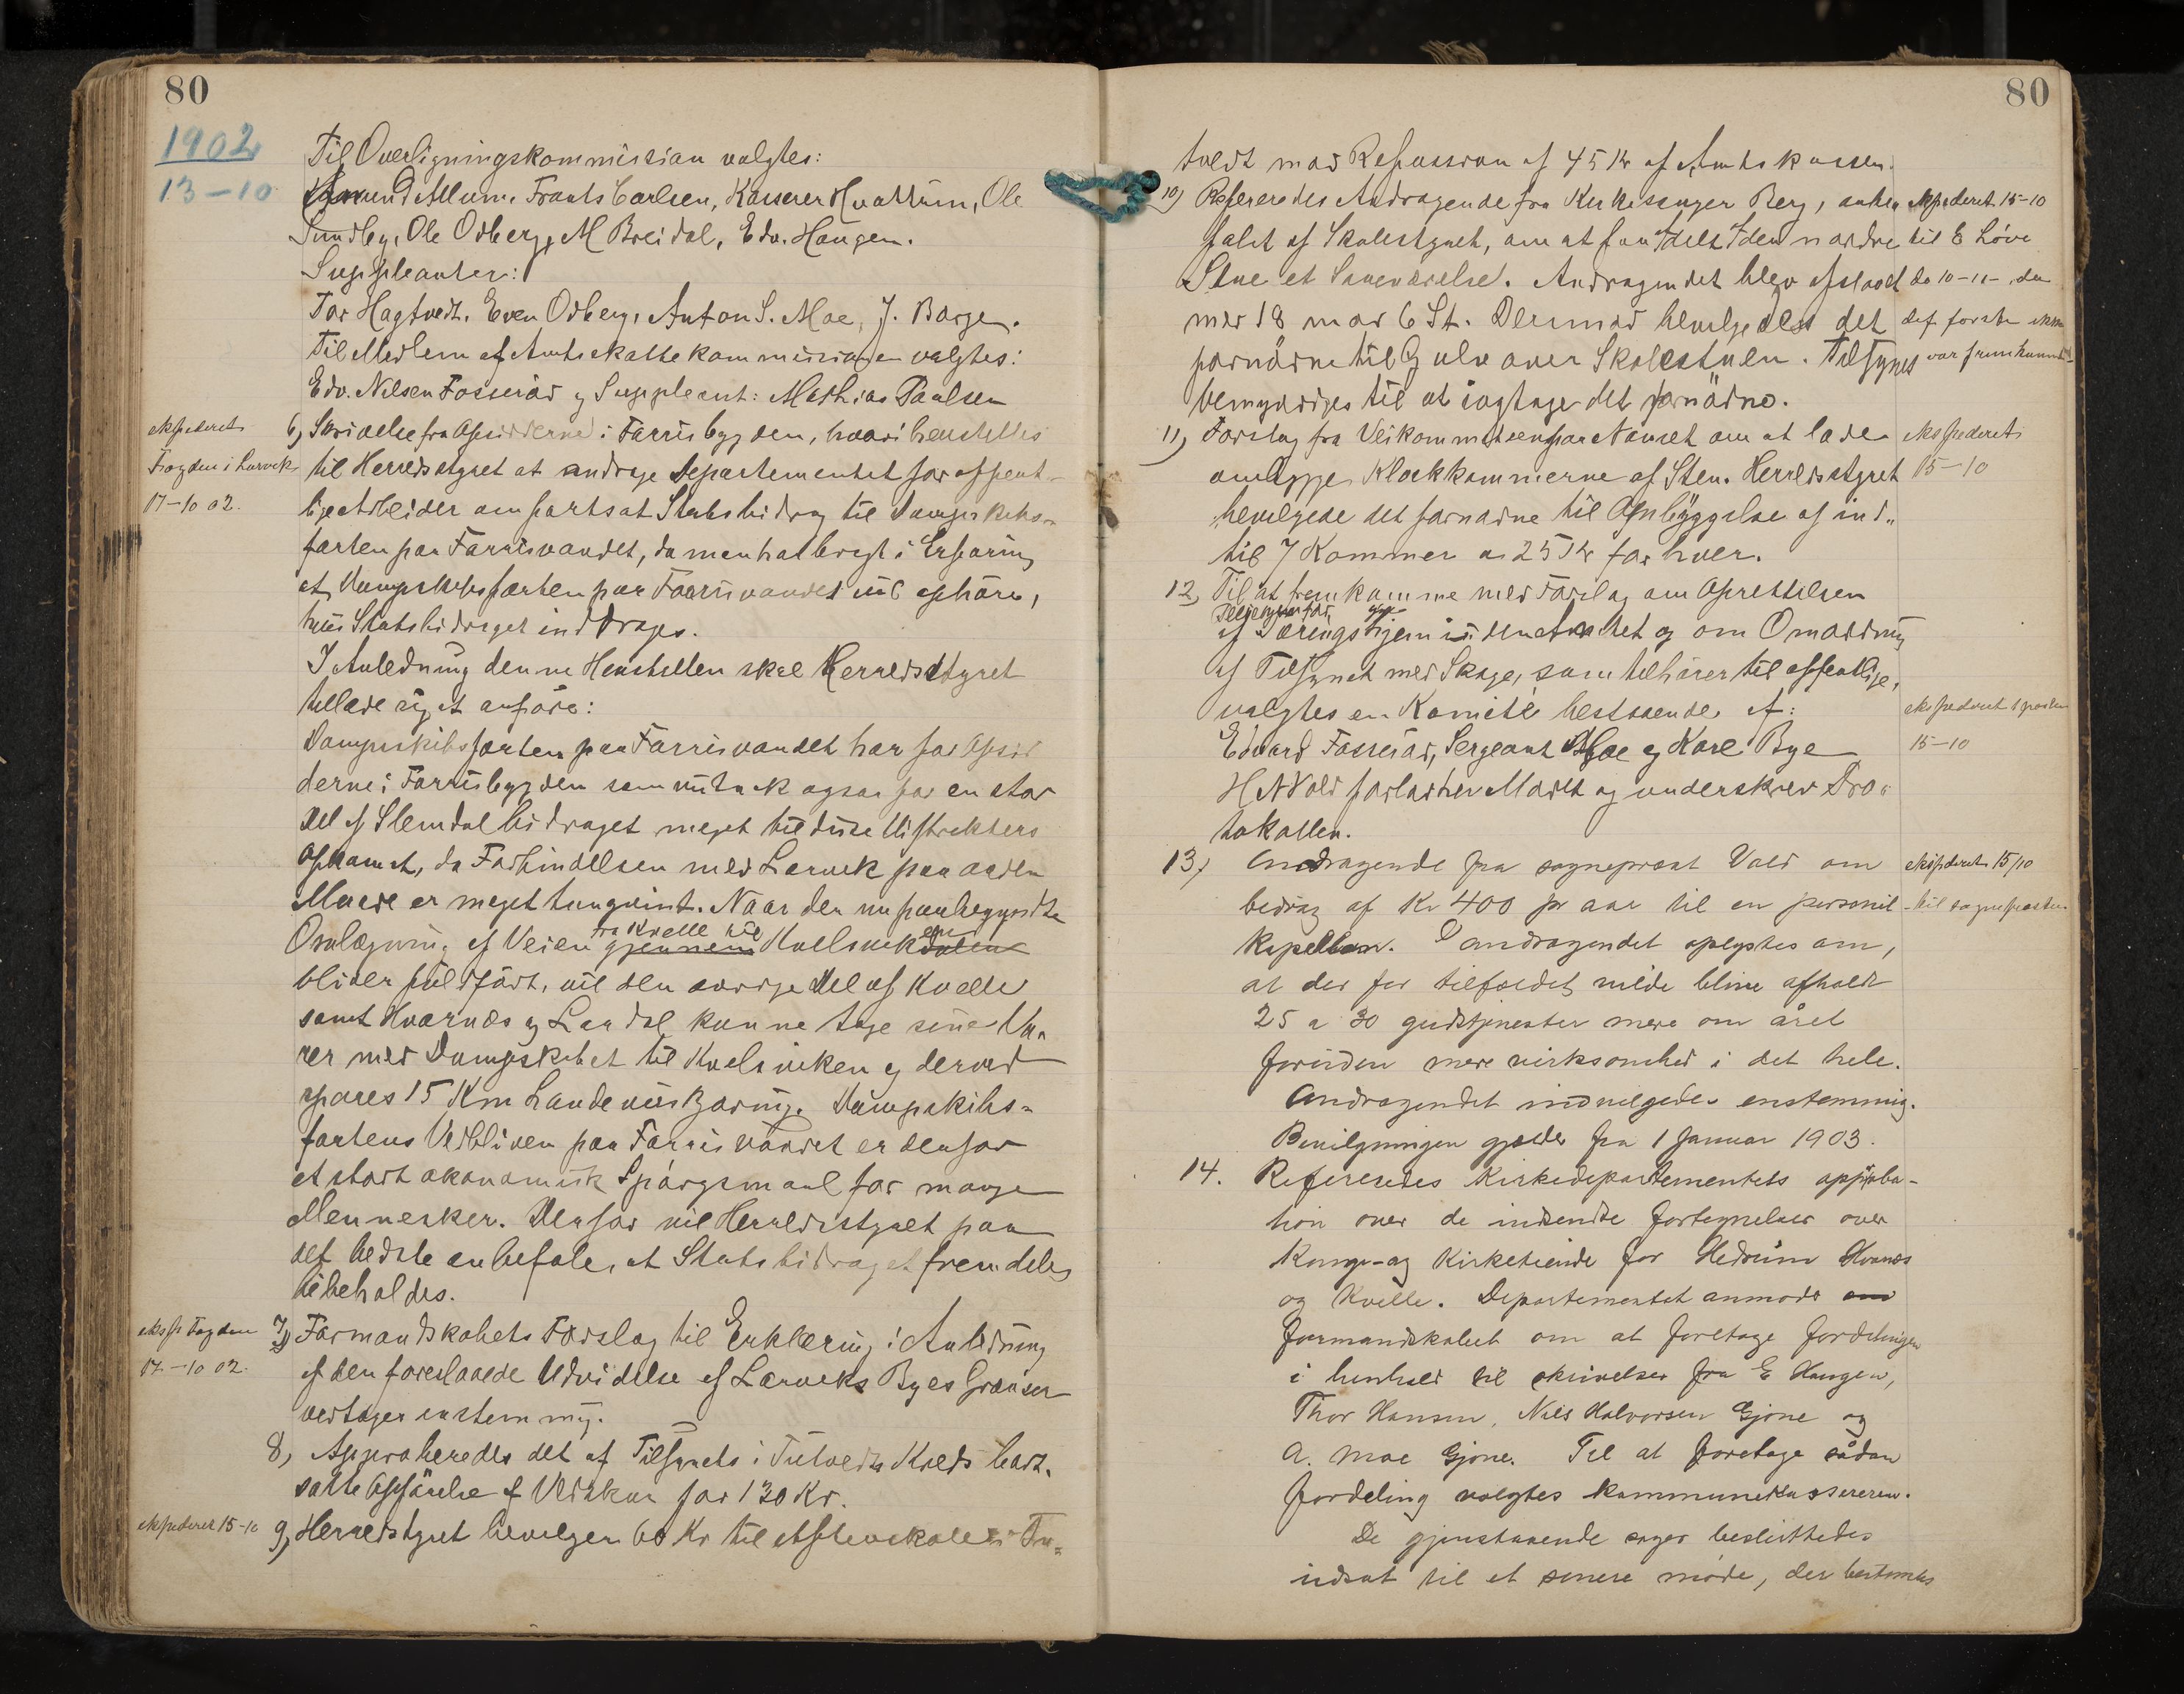 80
1902
13-10
Til Overligningskommission valgtes:
Amund Allum, Frants Carlsen, Kasserer Hvattum, Ole
Sundby, Ole Odberg, M Breidal, Edv. Haugen.
Suppleanter:
Tor Hagtvedt, Even Odberg, Anton S. Moe, J. Barge.
Til Medlem af Amtsskattekommissionen valgtes:
Edv. Nilsen Fosserød og Suppleant: Mathias Paulsen
ekspederet
Fogden i Larvik
17-10 02.
6) Skrivelse fra Opsidderne i Farrisbygden, hvori henstilles
til Herredsstyret at andrage Departementet for offent-
lige Arbeider om fortsat Statsbidrag til Dampskibs-
farten paa Farrisvandet, da man har bragt i Erfaring
at Dampskibsfarten paa Farrisvandet vil ophøre,
hvis Statsbidraget inddrages.
I Anledning denne Henstillen skal Herredsstyret
tillade sig at anføre:
Dampskibsfarten paa Farrisvandet har for Opsid
derne i Farrisbygden som ogsaa for en stor
Del af Slemdal bidraget meget til disse Distrikters
Opkomst, da Forbindelsen med Larvik paa anden
Maade er meget tungvint. Naar den nu paabegyndte
Omlægning af Veien gjennem fra Kvelle til Kvelsvikdalen en
bliver fuldført, vil den øvrige Del af Kvelle
samt Hvarnæs og Lardal kunne tage sine Va-
rer med Dampskibet til Kvelsviken og derved
spares 15 Km Landeveiskjøring. Dampskibs-
fartens Vedbliven paa Farrisvandet er derfor
et stort økonomisk Spørgsmaal for mange
Mennesker. Derfor vil Herredsstyret paa
det bedste anbefale, at Statsbidraget fremdeles
bibeholdes.
eksp Fogden
17-10 02.
7) Formandskabets Forslag til Erklæring i Anledning
af den foreslaaede Udvidelse af Larviks Byes Grænser
vedtages enstemmig.
8) Approberedes det af Tilsynets i Tutvedts Kreds bort-
satte Opførelse af Vedskur for 130 Kr.
ekspederet 15-10
9) Herredsstyret bevilger 60 Kr til Aftenskole i Tu-
80
tvedt mod Refussion af 45 Kr af Amtskassen.
10) Refereredes Andragende fra Kirkesanger Berg, anbe
falet af Skolestyret, om at faa delt den nordre
Stue et Soveværelse. Andragendet blev afslaaet
med 18 mod 6 St. Derimod bevilgedes det
fornødne til Gulv over Skolestuen. Tilsynet
bemyndiges til at iagttage det fornødne.
ekspederet 15-10
til E Løve
do 10-11-, da
det første eksp
var fremkommet
11) Forslag fra Veikommissen paa Nanset om at lade
ombygge Kloakkummerne af Sten. Herredsstyret
bevilgede det fornødne til Opbyggelse af ind-
til 7 Kummer a 25 Kr for hver.
ekspederet
15-10
12) Til at fremkomme med Forslag om Oprettelsen
af Tæringshjem i denne Amtet og om Omordning
af Tilsynet med Skoge, som tilhører til offentlige,
valgtes en Komité bestaaende af:
Edvard Fosserød, Sergeant Moe og Karl Bye
H N Vold forlader Mødet og underskrev Pro-
tokollen.
ekspederet 1 posten
15-10
13) Andragende fra sogneprest Vold om
bidrag af Kr 400 pr aar til en personel
kapellan. I andragendet oplystes om,
at der for tilfældet vilde blive afholdt
25 a 30 gudstjenester mere om året
foruden mere virksomhed i det hele.
Andragendet indvilgedes enstemmig.
Bevilgningen gjælder fra 1 Januar 1903.
ekspederet 15/10
til sognepresten
14. Refereredes Kirkedepartementets approba-
tion over de indsendte fortegnelser over
Konge- og Kirketiende for Hedrum Hvarnes
og Kvelle. Departementet anmoder om
formandskabet om at foretage fordelingen
i henhold til skrivelser fra E Haugen,
Thor Hansen, Nils Halvorsen Gjone og
A. Moe Gjone. Til at foretage sådan
fordeling valgtes kommunekassereren.
De gjenstaaende sager besluttedes
udsat til et senere møde, der bestemtes